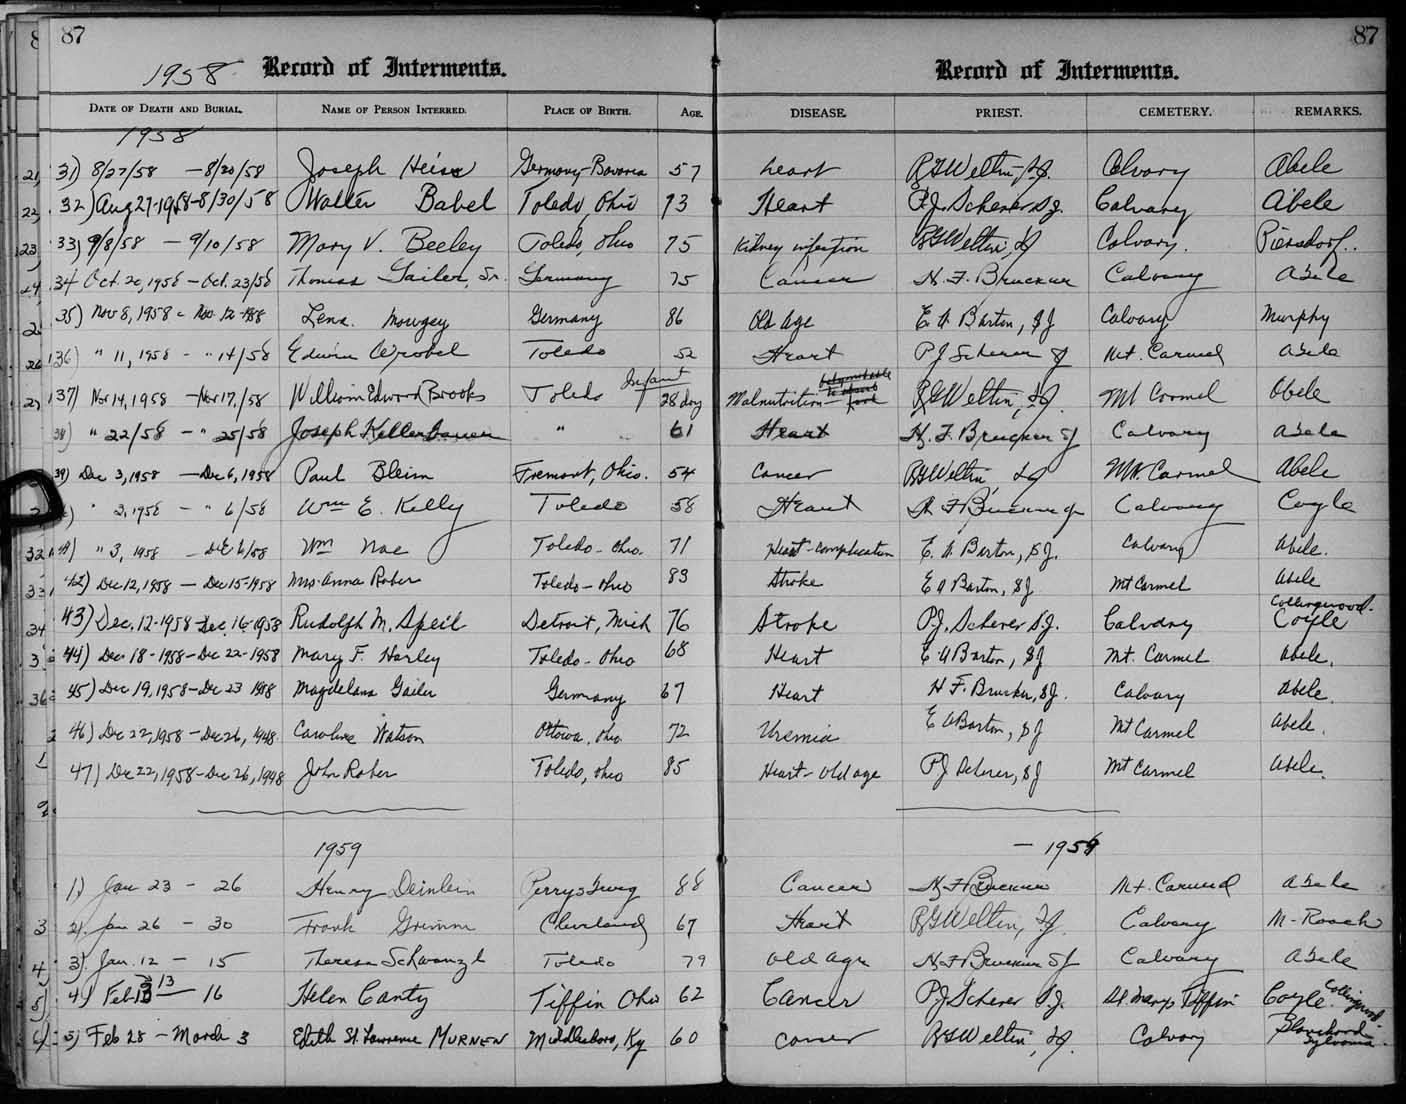 87 87
1958 Record of Interments. Record of Interments.
DATE OF DEATH AND BURIAL. NAME OF PERSON INTERRED. PLACE OF BIRTH. AGE. DISEASE. PRIEST. CEMETERY. REMARKS.
1958
31) 8/27/58 - 8/30/58 Joseph Germany-Bavaria 57 heart RGWeltin, SJ. Calvary Abele
32) Aug 27-1958-8/30/58 Walter Babel Toledo, Ohio 93 Heart P.J. Scherer S.J. Calvary Abele
33) 9/8/58 - 9/10/58 Mary V. Beeley Toledo, Ohio 75 Kidney infection RGWeltin, SJ Calvary.
34 Oct. 20, 1958 - Oct. 23/58 Thomas Gailer, Sr. Germany 75 Cancer H. F. Brucker Calvary Abele
35) Nov 8, 1958 - Nov. 12-1958 Lena Germany 86 Old Age E. A. Barton, SJ Calvary Murphy
36) " 11, 1958 - " 14/58 Edwin Wrobel Toledo 52 Heart PJ Scherer SJ Mt. Carmel Abele
37) Nov 14, 1958 - Nov 17,/58 William Edward Brooks Toledo Infant 28 day Malnutrition RGWeltin, SJ. Mt Carmel Abele
38) " 22/58 - " 25/58 Joseph Kellerbauer " " 61 Heart H. F. Brucker SJ Calvary Abele
39) Dec 3, 1958 - Dec 6, 1958 Paul Bleim Fremont, Ohio. 54 Cancer RGWeltin, SJ Mt. Carmel Abele
" 3, 1958 - " 6/58 Wm E. Kelly Toledo 58 Heart H F Brucker SJ Calvary Coyle
41) " 3, 1958 - Dec 6/58 Wm Nae Toledo - Ohio. 71 Heart-complication E. A. Barton, SJ. Calvary Abele.
42) Dec 12, 1958 - Dec 15-1958 Mrs. Anna Rober Toledo - Ohio 83 Stroke E A Barton, SJ Mt Carmel Abele
43) Dec. 12-1958 - Dec. 16-1958 Rudolph M. Speil Detroit, Mich 76 Stroke P.J. Scherer S.J. Calvary Collingwood. Coyle
44) Dec 18-1958 - Dec 22-1958 Mary F. Harley Toledo - Ohio 68 Heart E A Barton, SJ Mt. Carmel Abele.
45) Dec 19, 1958 - Dec 23 1958 Magdelana Gailer Germany 67 Heart H F. Brucker, SJ. Calvary Abele.
46) Dec 22, 1958 - Dec 26, 1948 Caroline Watson Ottowa, Ohio 72 Uremia E A Barton, SJ Mt Carmel Abele.
47) Dec 22, 1958 - Dec 26, 1948 John Rober Toledo, Ohio 85 Heart - old age PJ Scherer, SJ Mt Carmel Abele.
1959 - 1959
1) Jan 23 - 26 Henry Deinlein Perrysburg 88 Cancer H F Brucker Mt. Carmel Abele
2). Jan 26 - 30 Frank Grimm Cleveland 67 Heart RGWeltin, SJ. Calvary M-Roach
3). Jan. 12 - 15 Theresa Schwanzl Toledo 79 Old Age H. F Brucker SJ Calvary Abele
4) Feb 13 - 16 Helen Canty Tiffin Ohio 62 Cancer P.J. Scherer S.J. St. Marys Tiffin Coyle Collingwood.
5) Feb 28 - March 3 Edith St. Lawrence MURNEN Middlesboro, Ky 60 cancer RGWeltin, SJ. Calvary Blanchard Sylvania.